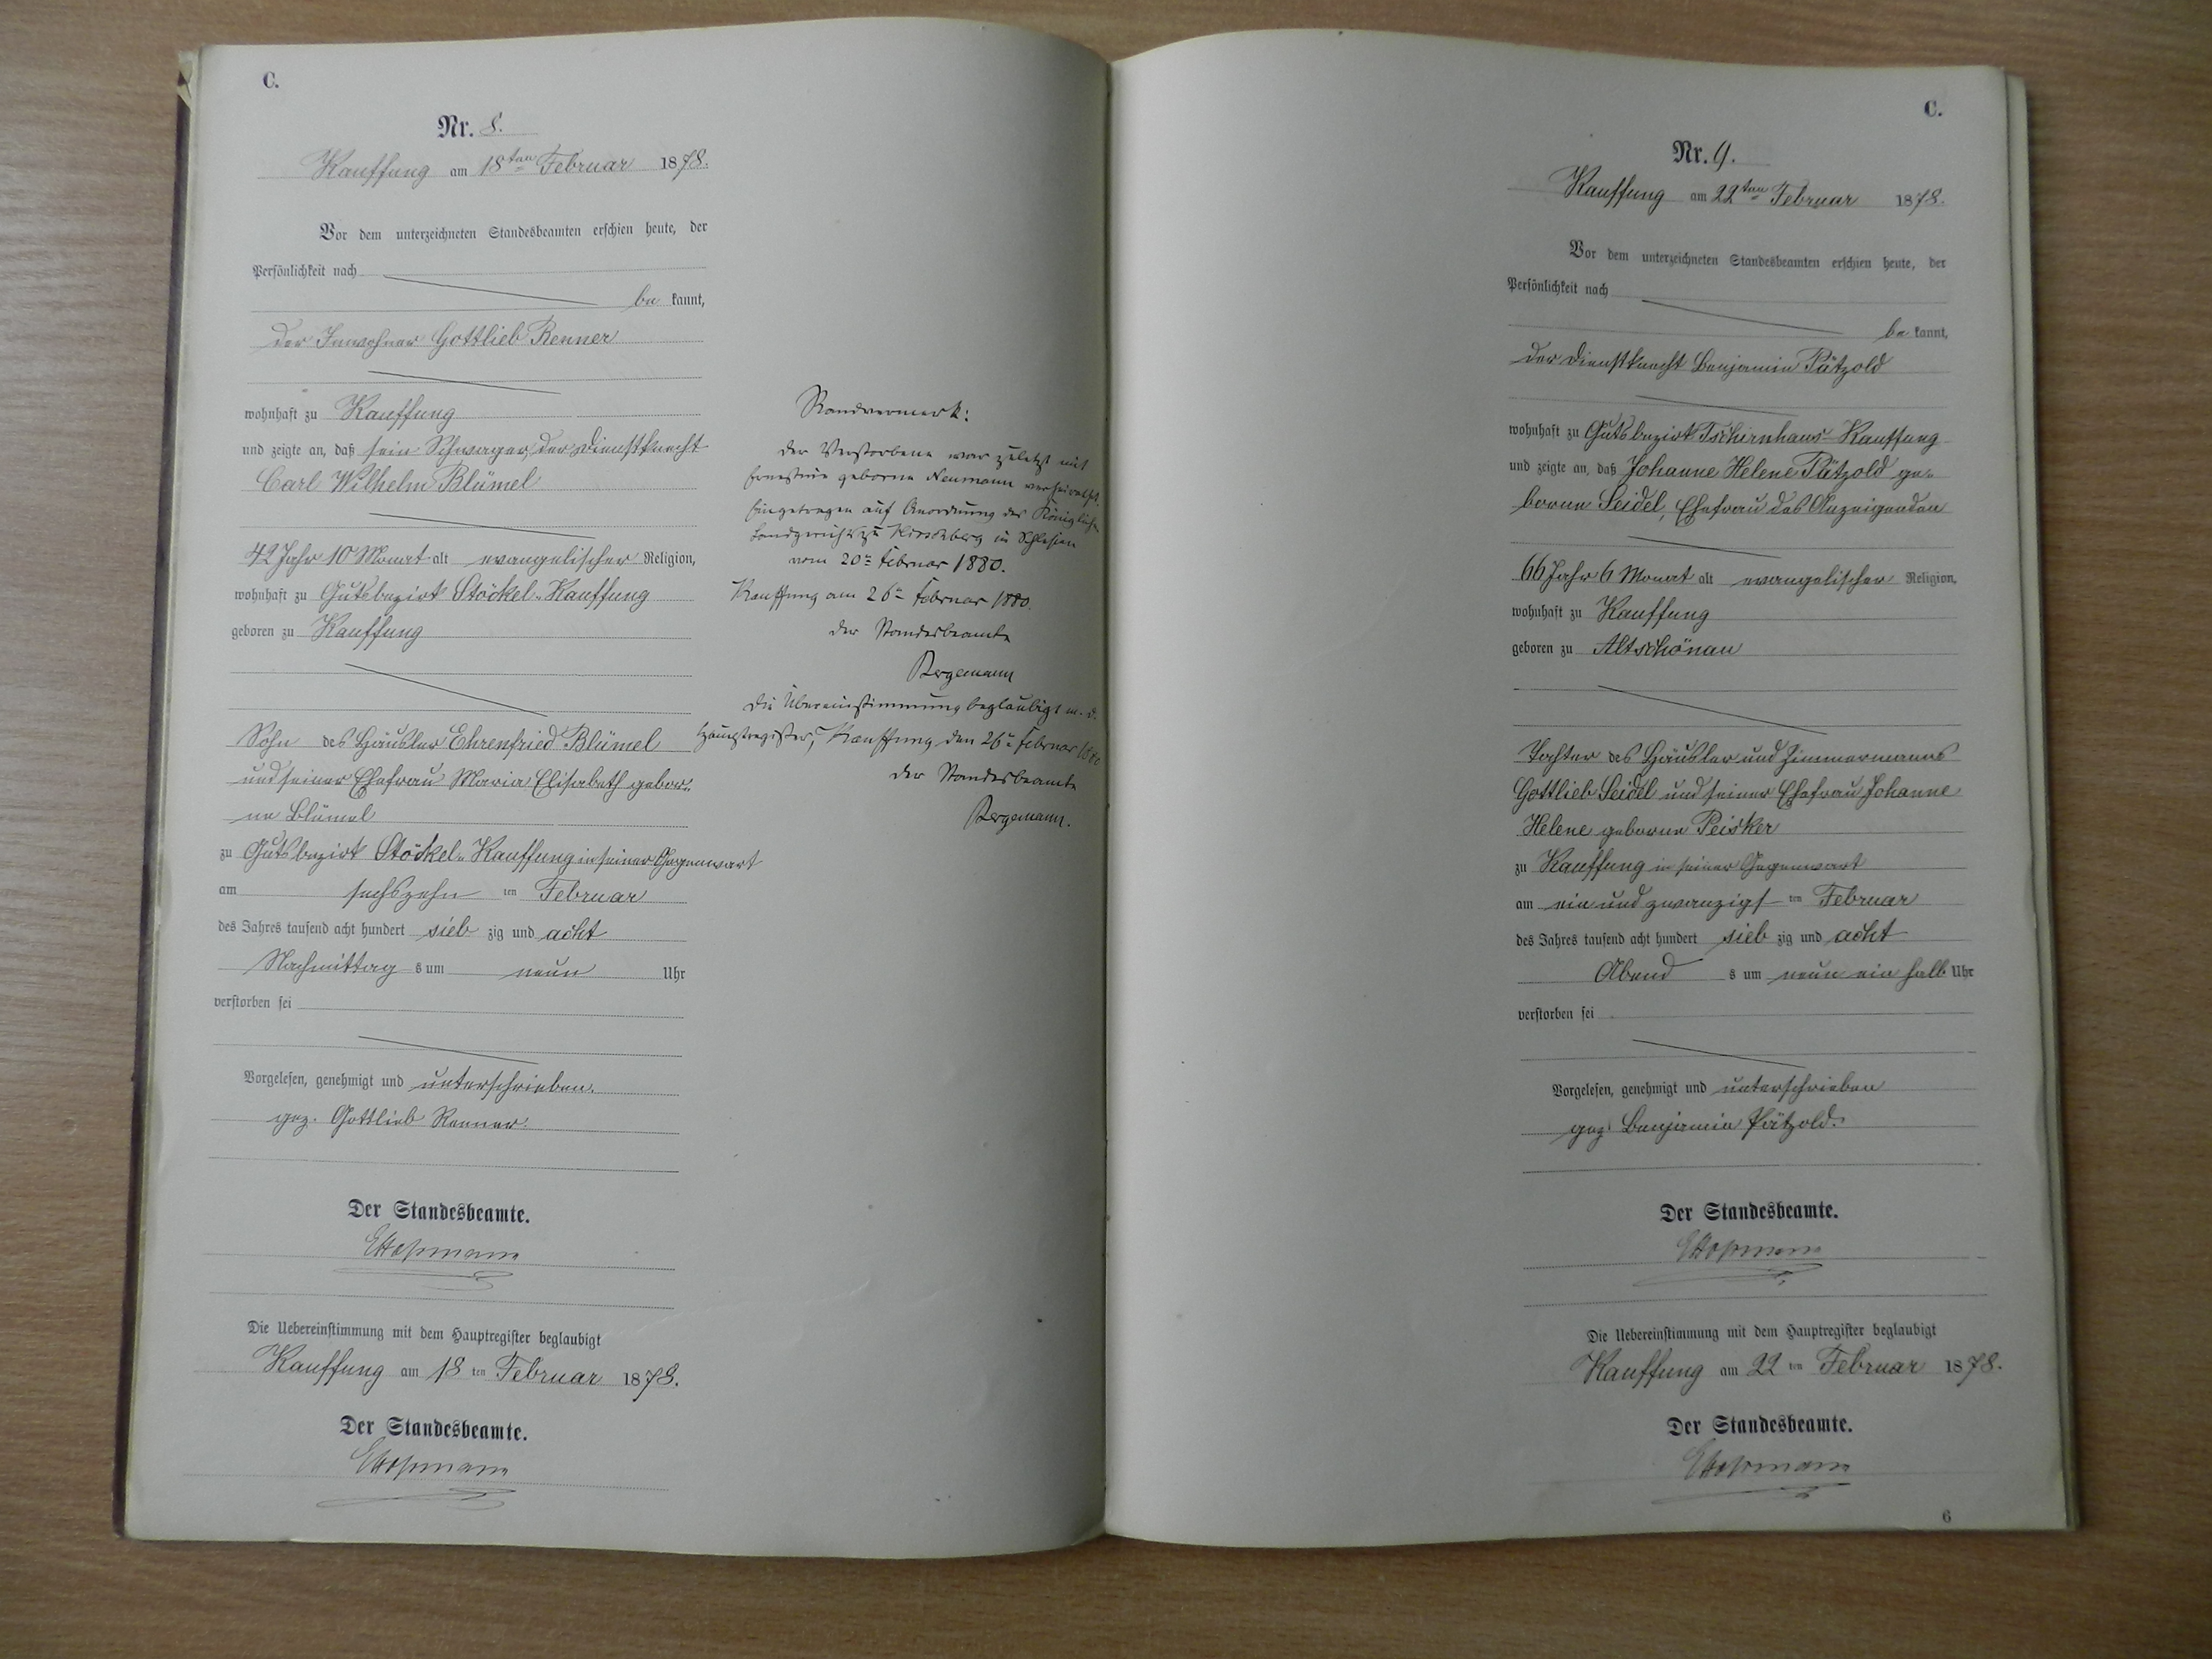 C.
Nr. 8.
Kauffung am 18ten Februar 1878.
Vor dem unterzeichneten Standesbeamten erschien heute, der
Persönlichkeit nach
be kannt,
der Inwohner Gottlieb Renner
wohnhaft zu Kauffung
und zeigte an, daß sein Schwager, der Dienstknecht
Carl Wilhelm Blümel
42 Jahr 10 Monat alt evangelischer Religion,
wohnhaft zu Gutsbezirk Stöckel-Kauffung
geboren zu Kauffung
Sohn des Häusler Ehrenfried Blümel
und seiner Ehefrau Maria Elisabeth gebor-
ne Blümel
zu Gutsbezirk Stöckel-Kauffung in seiner Gegenwart
am sechszehn ten Februar
des Jahres tausend acht hundert sieb zig und acht
Nachmittag s um neun Uhr
verstorben sei
Vorgelesen, genehmigt und unterschrieben.
gez. Gottlieb Renner.
Der Standesbeamte.
Die Uebereinstimmung mit dem Hauptregister beglaubigt
Kauffung am 18 ten Februar 1878.
Der Standesbeamte.
Randvermerk:
Der Verstorbene war zuletzt mit
Ernestine geborne Neumann verheirathet.
Eingetragen auf Anordnung des Königlichen
Landgerichts zu Hirschberg in Schlesien
vom 20ten Februar 1880.
Kauffung am 26ten Februar 1880.
Der Standesbeamte
Bergemann
Die Übereinstimmung beglaubigt m. d.
Hauptregister, Kauffung den 26ten Februar 1880
Der Standesbeamte
Bergemann.
C.
Nr. 9.
Kauffung am 22ten Februar 1878.
Vor dem unterzeichneten Standesbeamten erschien heute, der
Persönlichkeit nach
be kannt,
der Dienstknecht Benjamin Pätzold
wohnhaft zu Gutsbezirk Tschirnhaus-Kauffung
und zeigte an, daß Johanne Helene Pätzold ge-
borne Seidel, Ehefrau des Anzeigenden
66 Jahr 6 Monat alt evangelischer Religion,
wohnhaft zu Kauffung
geboren zu Altschönau
Tochter des Häusler und Zimmermanns
Gottlieb Seidel und seiner Ehefrau Johanne
Helene geborne Peisker
zu Kauffung in seiner Gegenwart
am ein und zwanzigst ten Februar
des Jahres tausend acht hundert sieb zig und acht
Abend s um neun ein halb Uhr
verstorben sei
Vorgelesen, genehmigt und unterschrieben
gez. Benjamin Pätzold.
Der Standesbeamte.
Die Uebereinstimmung mit dem Hauptregister beglaubigt
Kauffung am 22 ten Februar 1878.
Der Standesbeamte.
6